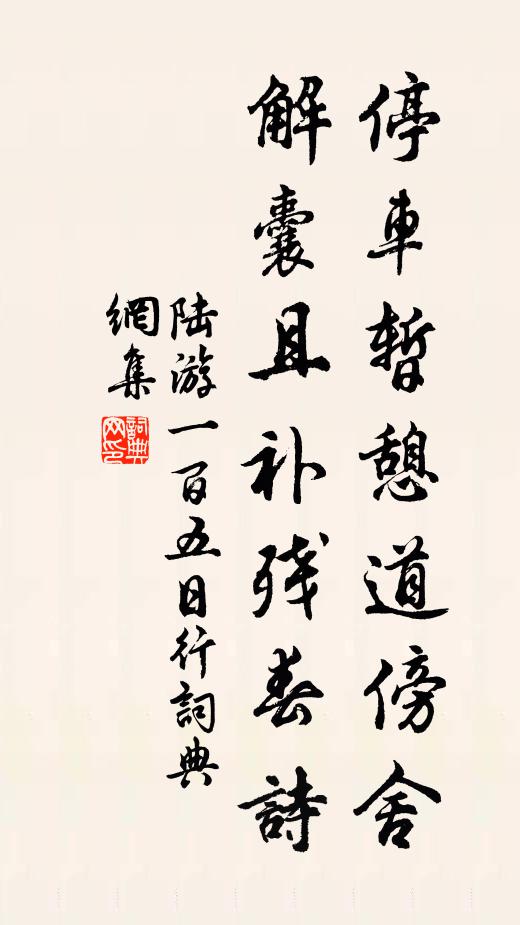 停車暫憩道傍舍
解囊且补殘春詩
陆游一百五日行詞典
網集
詞典網印